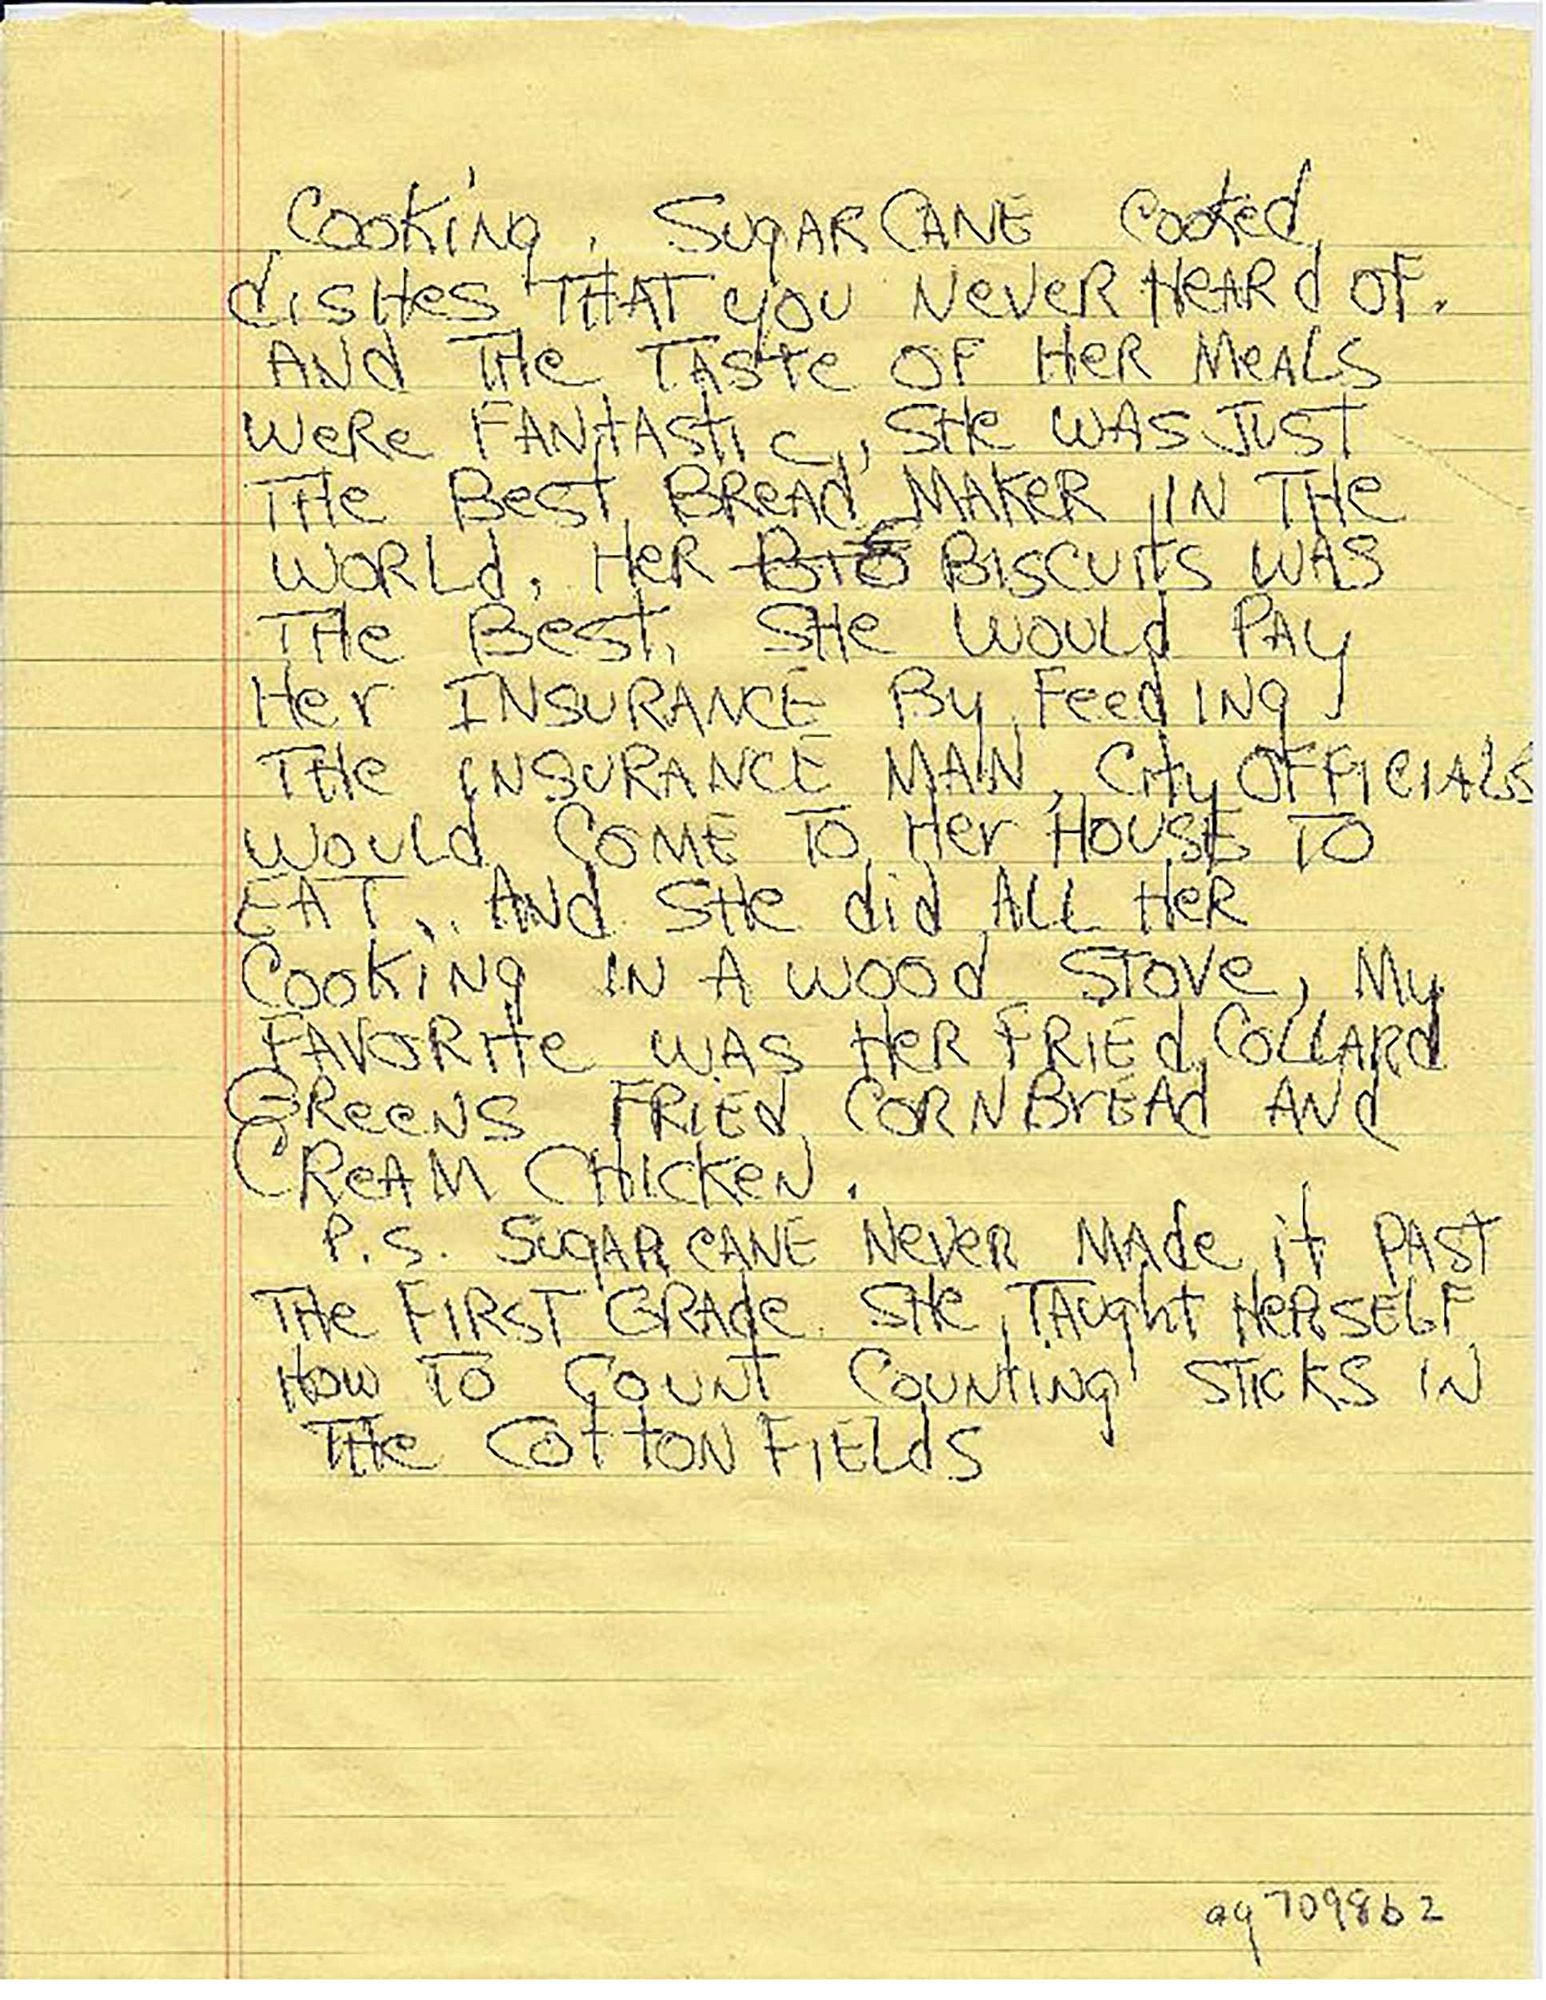 Cooking. SugarCANE Cooked
dishes THAT you NeveR HeARd OF.
ANd THe TAste OF HeR MeALS
WeRe FANtAstic, SHe WAS JUST
THe Best BReAd MAKeR IN THe
WORLd. HeR BIS BISCUItS WAS
THe Best. SHe WOULd PAy
Her INSURANCE By Feeding
THe INSURANCE MAN, City OFFICIALS
WOULd COME TO Her HOUSE TO
EAT. ANd SHe did ALL HeR
COOKiNg IN A WOOd STOVe, My
FAVORite WAS HeR FRIEd COLLARd
GReeNS FRIEd CORNBrEAd ANd
CReAM CHICKeN.
P.S. SugAR CANE NeVeR MAde it PAST
THe FIRST GRAde. SHe TAught HeRSELF
How TO COUNT COUNtiNg STICKS IN
THe COttON FIELdS
ag 709862